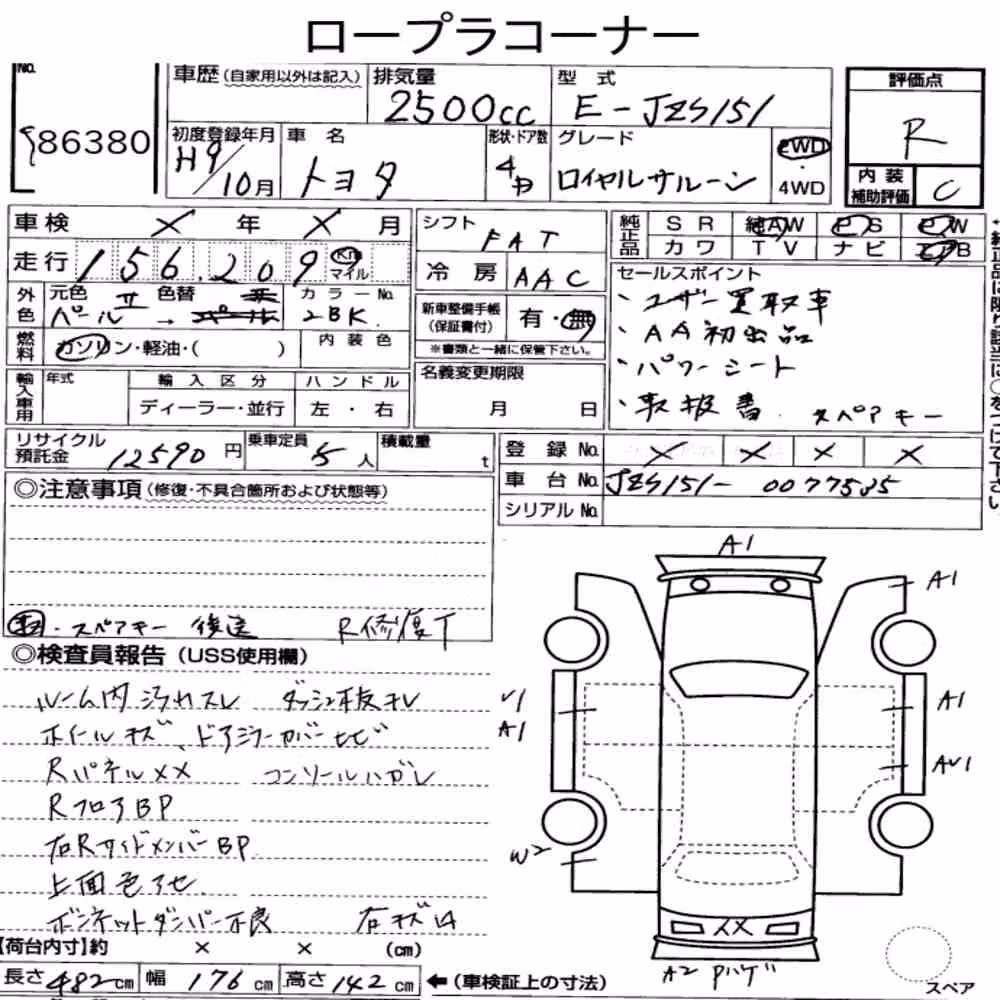 ロープラコーナー
No. 86380
車歴 (自家用以外は記入) 排気量 2500cc 型式 E-JZS151
初度登録年月 H9/10月 車名 トヨタ 形状・ドア数 4 グレード ロイヤルサルーン 2WD・4WD
評価点 R
内装補助評価 C
車検 × 年 × 月
走行 156,209 Km マイル
シフト FAT
冷房 AAC
純正品 SR 純AW PS PW
カワ TV ナビ エアB
外色 元色 パール II 色替 → パール カラーNo. 2BK
内装色
燃料 ガソリン・軽油・( )
新車整備手帳(保証書付) 有・無
※書類と一緒に保管下さい。
セールスポイント
・ユーザー買取車
・AA初出品
・パワーシート
・取扱書 スペアキー
輸入車用 年式 輸入区分 ハンドル
ディーラー・並行 左・右
名義変更期限 月 日
リサイクル預託金 12590円 乗車定員 5人 積載量 t
登録No. × × × ×
車台No. JZS151-0077535
シリアルNo.
◎注意事項 (修復・不具合箇所および状態等)
取・スペアキー 後送 R修復T
◎検査員報告 (USS使用欄)
ルーム内汚れスレ ダッシュ板キレ
ホイールキズ、ドアミラーカバーヒビ
Rパネル×× コンソールハガレ
RフロアBP
右RサイドメンバーBP
上面色アセ
ボンネットダンパー不良 右キズ
A1
A1
A1
A1
W2
XX
A2 Pハゲ
スペア
【荷台内寸】約 × × (cm)
長さ 482cm 幅 176cm 高さ 142cm ←(車検証上の寸法)